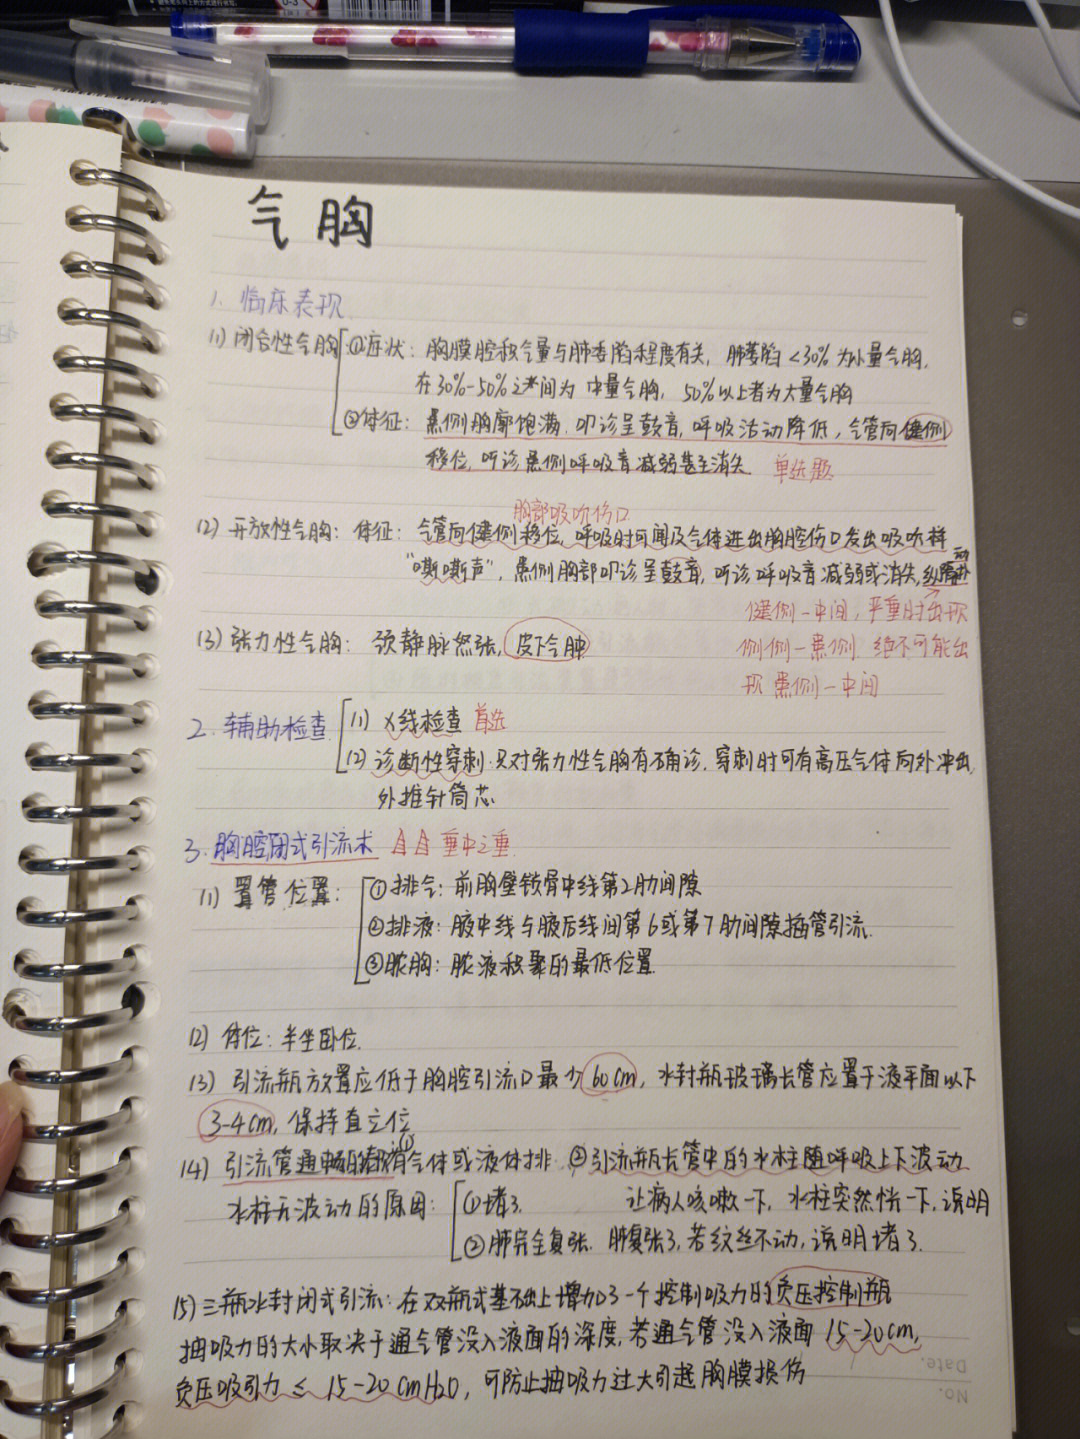 气胸
1. 临床表现
(1) 闭合性气胸 ①症状：胸膜腔积气量与肺萎陷程度有关，肺萎陷<30%为小量气胸，
在30%-50%之间为中量气胸，50%以上者为大量气胸
②体征：患侧胸廓饱满，叩诊呈鼓音，呼吸活动降低，气管向健侧
移位，听诊患侧呼吸音减弱甚至消失 单选题
胸部吸吮伤口
(2) 开放性气胸：体征：气管向健侧移位，呼吸时可闻及气体进出胸腔伤口发出吸吮样
"嘶嘶声"，患侧胸部叩诊呈鼓音，听诊呼吸音减弱或消失，纵隔扑动
健侧-中间，严重时出现
(3) 张力性气胸：颈静脉怒张，皮下气肿
侧侧-患侧 绝不可能出
现患侧-中间
2. 辅助检查 (1) X线检查 首选
(2) 诊断性穿刺：只对张力性气胸有确诊，穿刺时可有高压气体向外冲出，
外推针筒芯
3. 胸腔闭式引流术 重中之重
(1) 置管位置：①排气：前胸壁锁骨中线第2肋间隙
②排液：腋中线与腋后线间第6或第7肋间隙插管引流
③脓胸：脓液积聚的最低位置
(2) 体位：半坐卧位
(3) 引流瓶放置应低于胸腔引流口最少60cm，水封瓶玻璃长管应置于液平面以下
3-4cm，保持直立位
(4) 引流管通畅的 ①有气体或液体排 ②引流瓶长管中的水柱随呼吸上下波动
水柱无波动的原因：①堵了 让病人咳嗽一下，水柱突然恍一下，说明
②肺完全复张 肺复张了，若纹丝不动，说明堵了.
(5) 三瓶水封闭式引流：在双瓶式基础上增加了一个控制吸力的负压控制瓶
抽吸力的大小取决于通气管没入液面的深度，若通气管没入液面15-20cm，
负压吸引力≤15-20cmH2O，可防止抽吸力过大引起胸膜损伤
Date.
No.